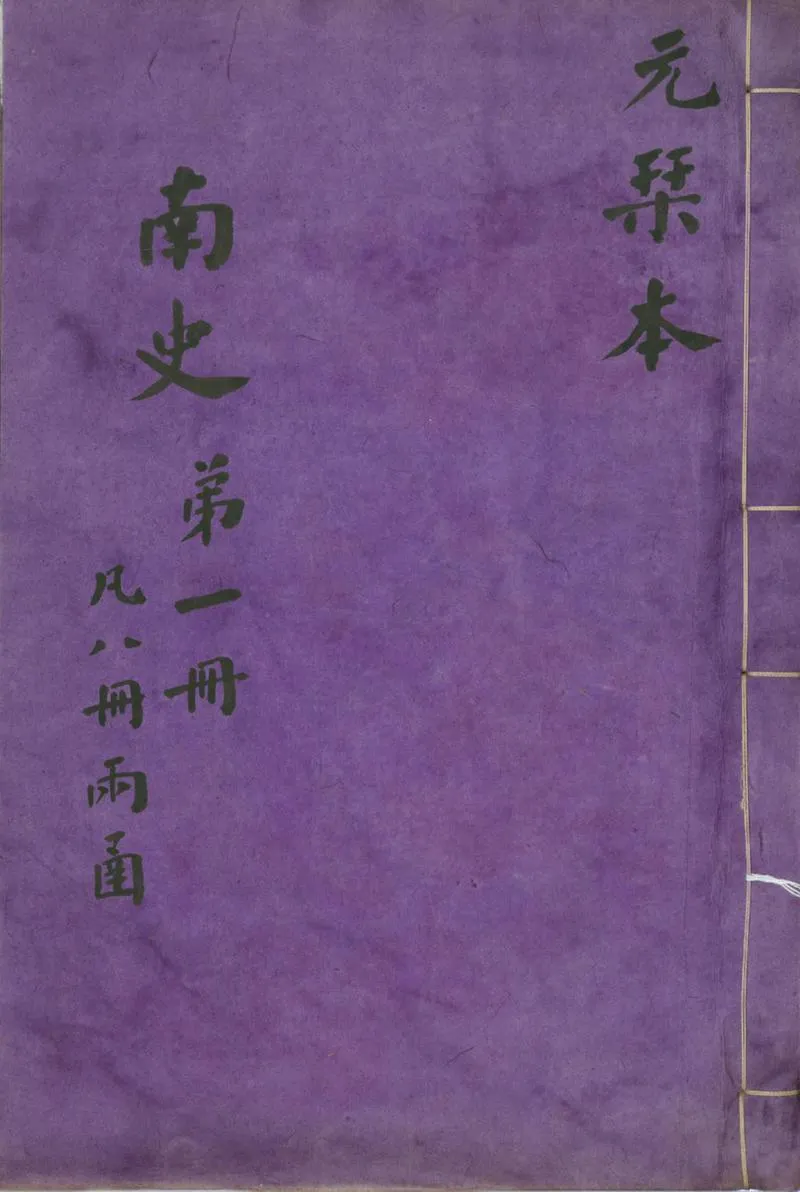 元栞本
南史 第一冊
凡八冊兩函